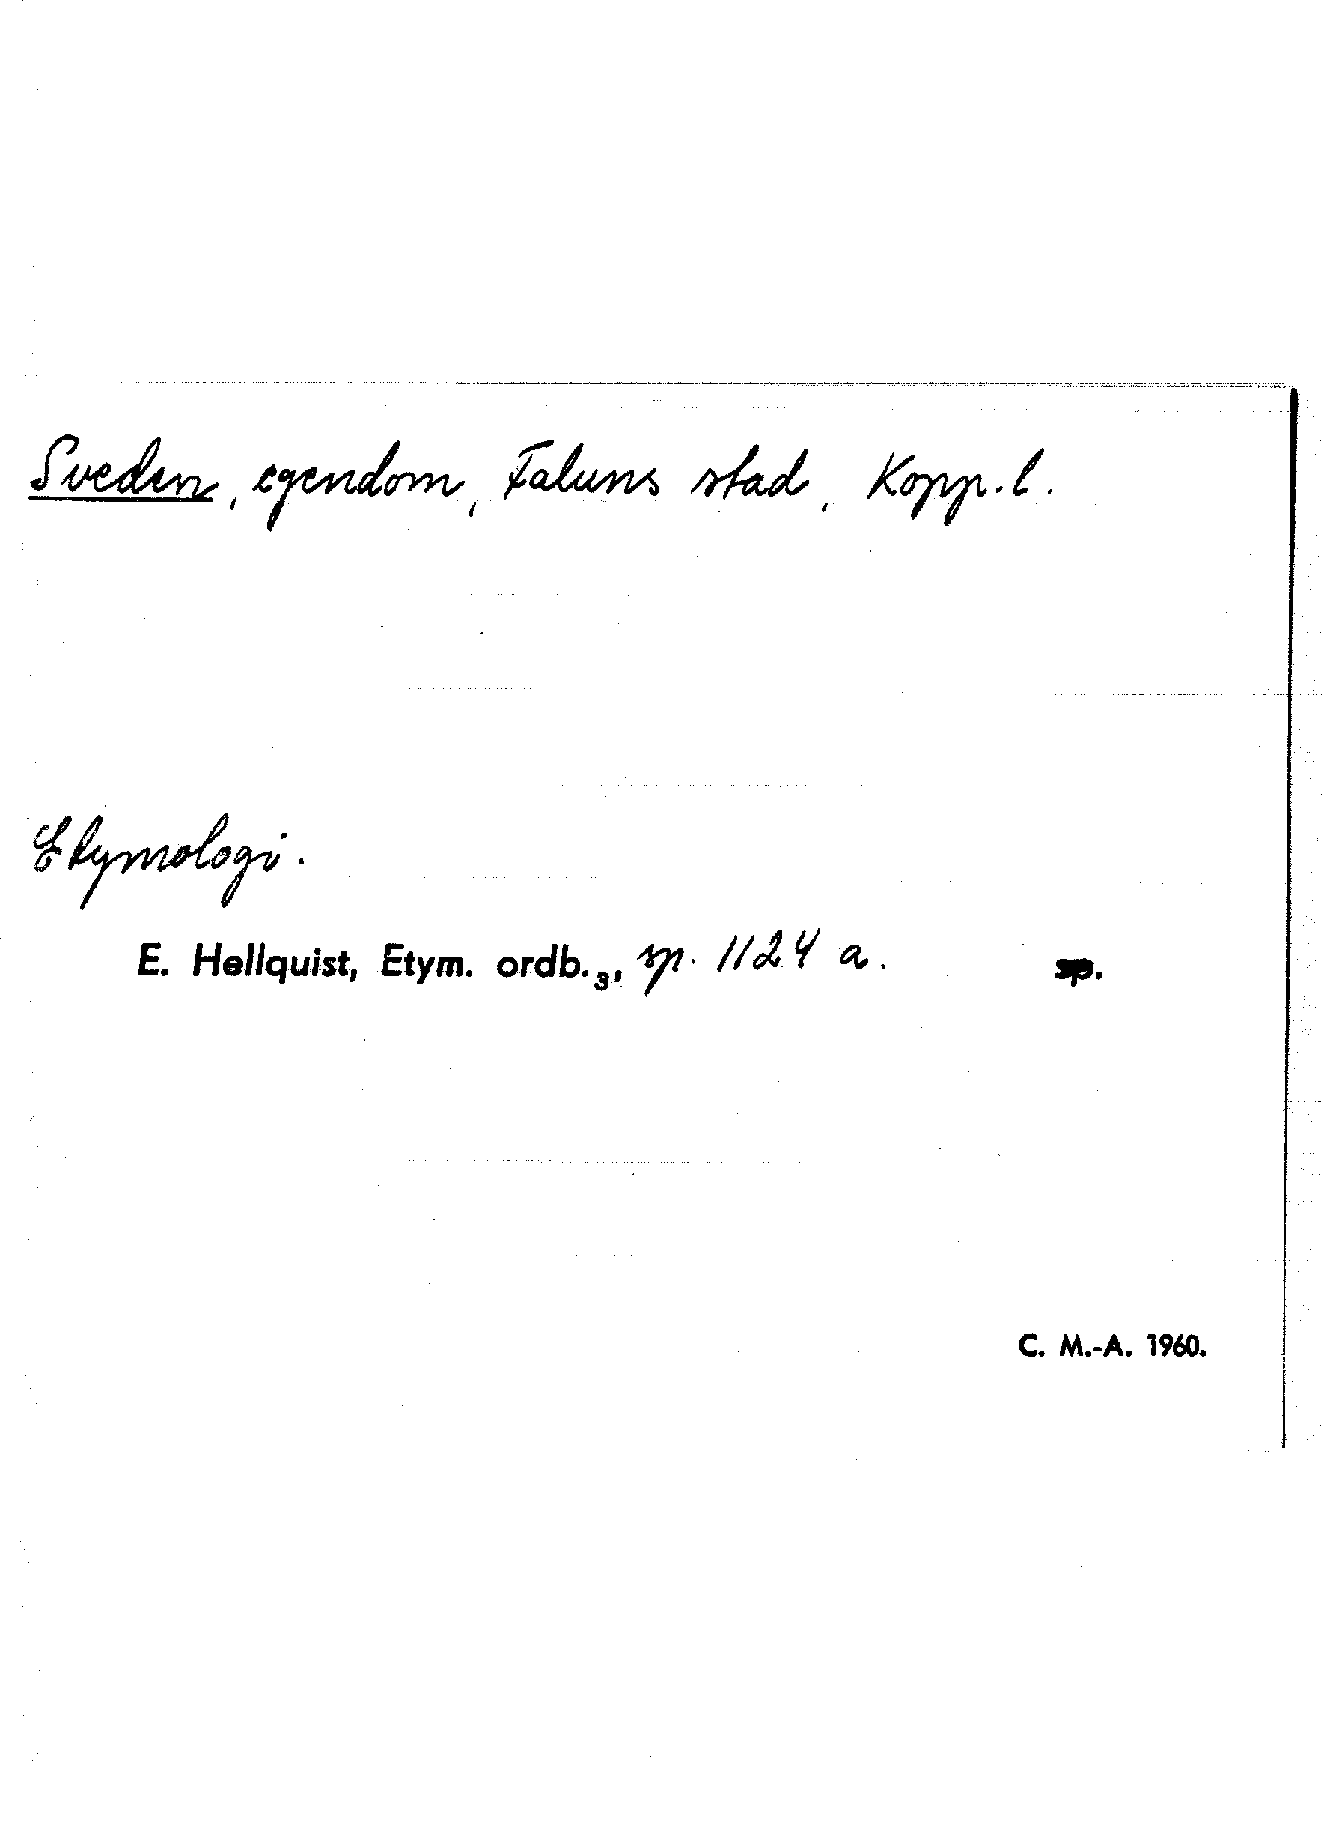 Sveden, egendom, Faluns stad, Kopp. l.
Etymologi.
E. Hellquist, Etym. ordb.₃, sp. 1124 a. sp.
C. M.-A. 1960.